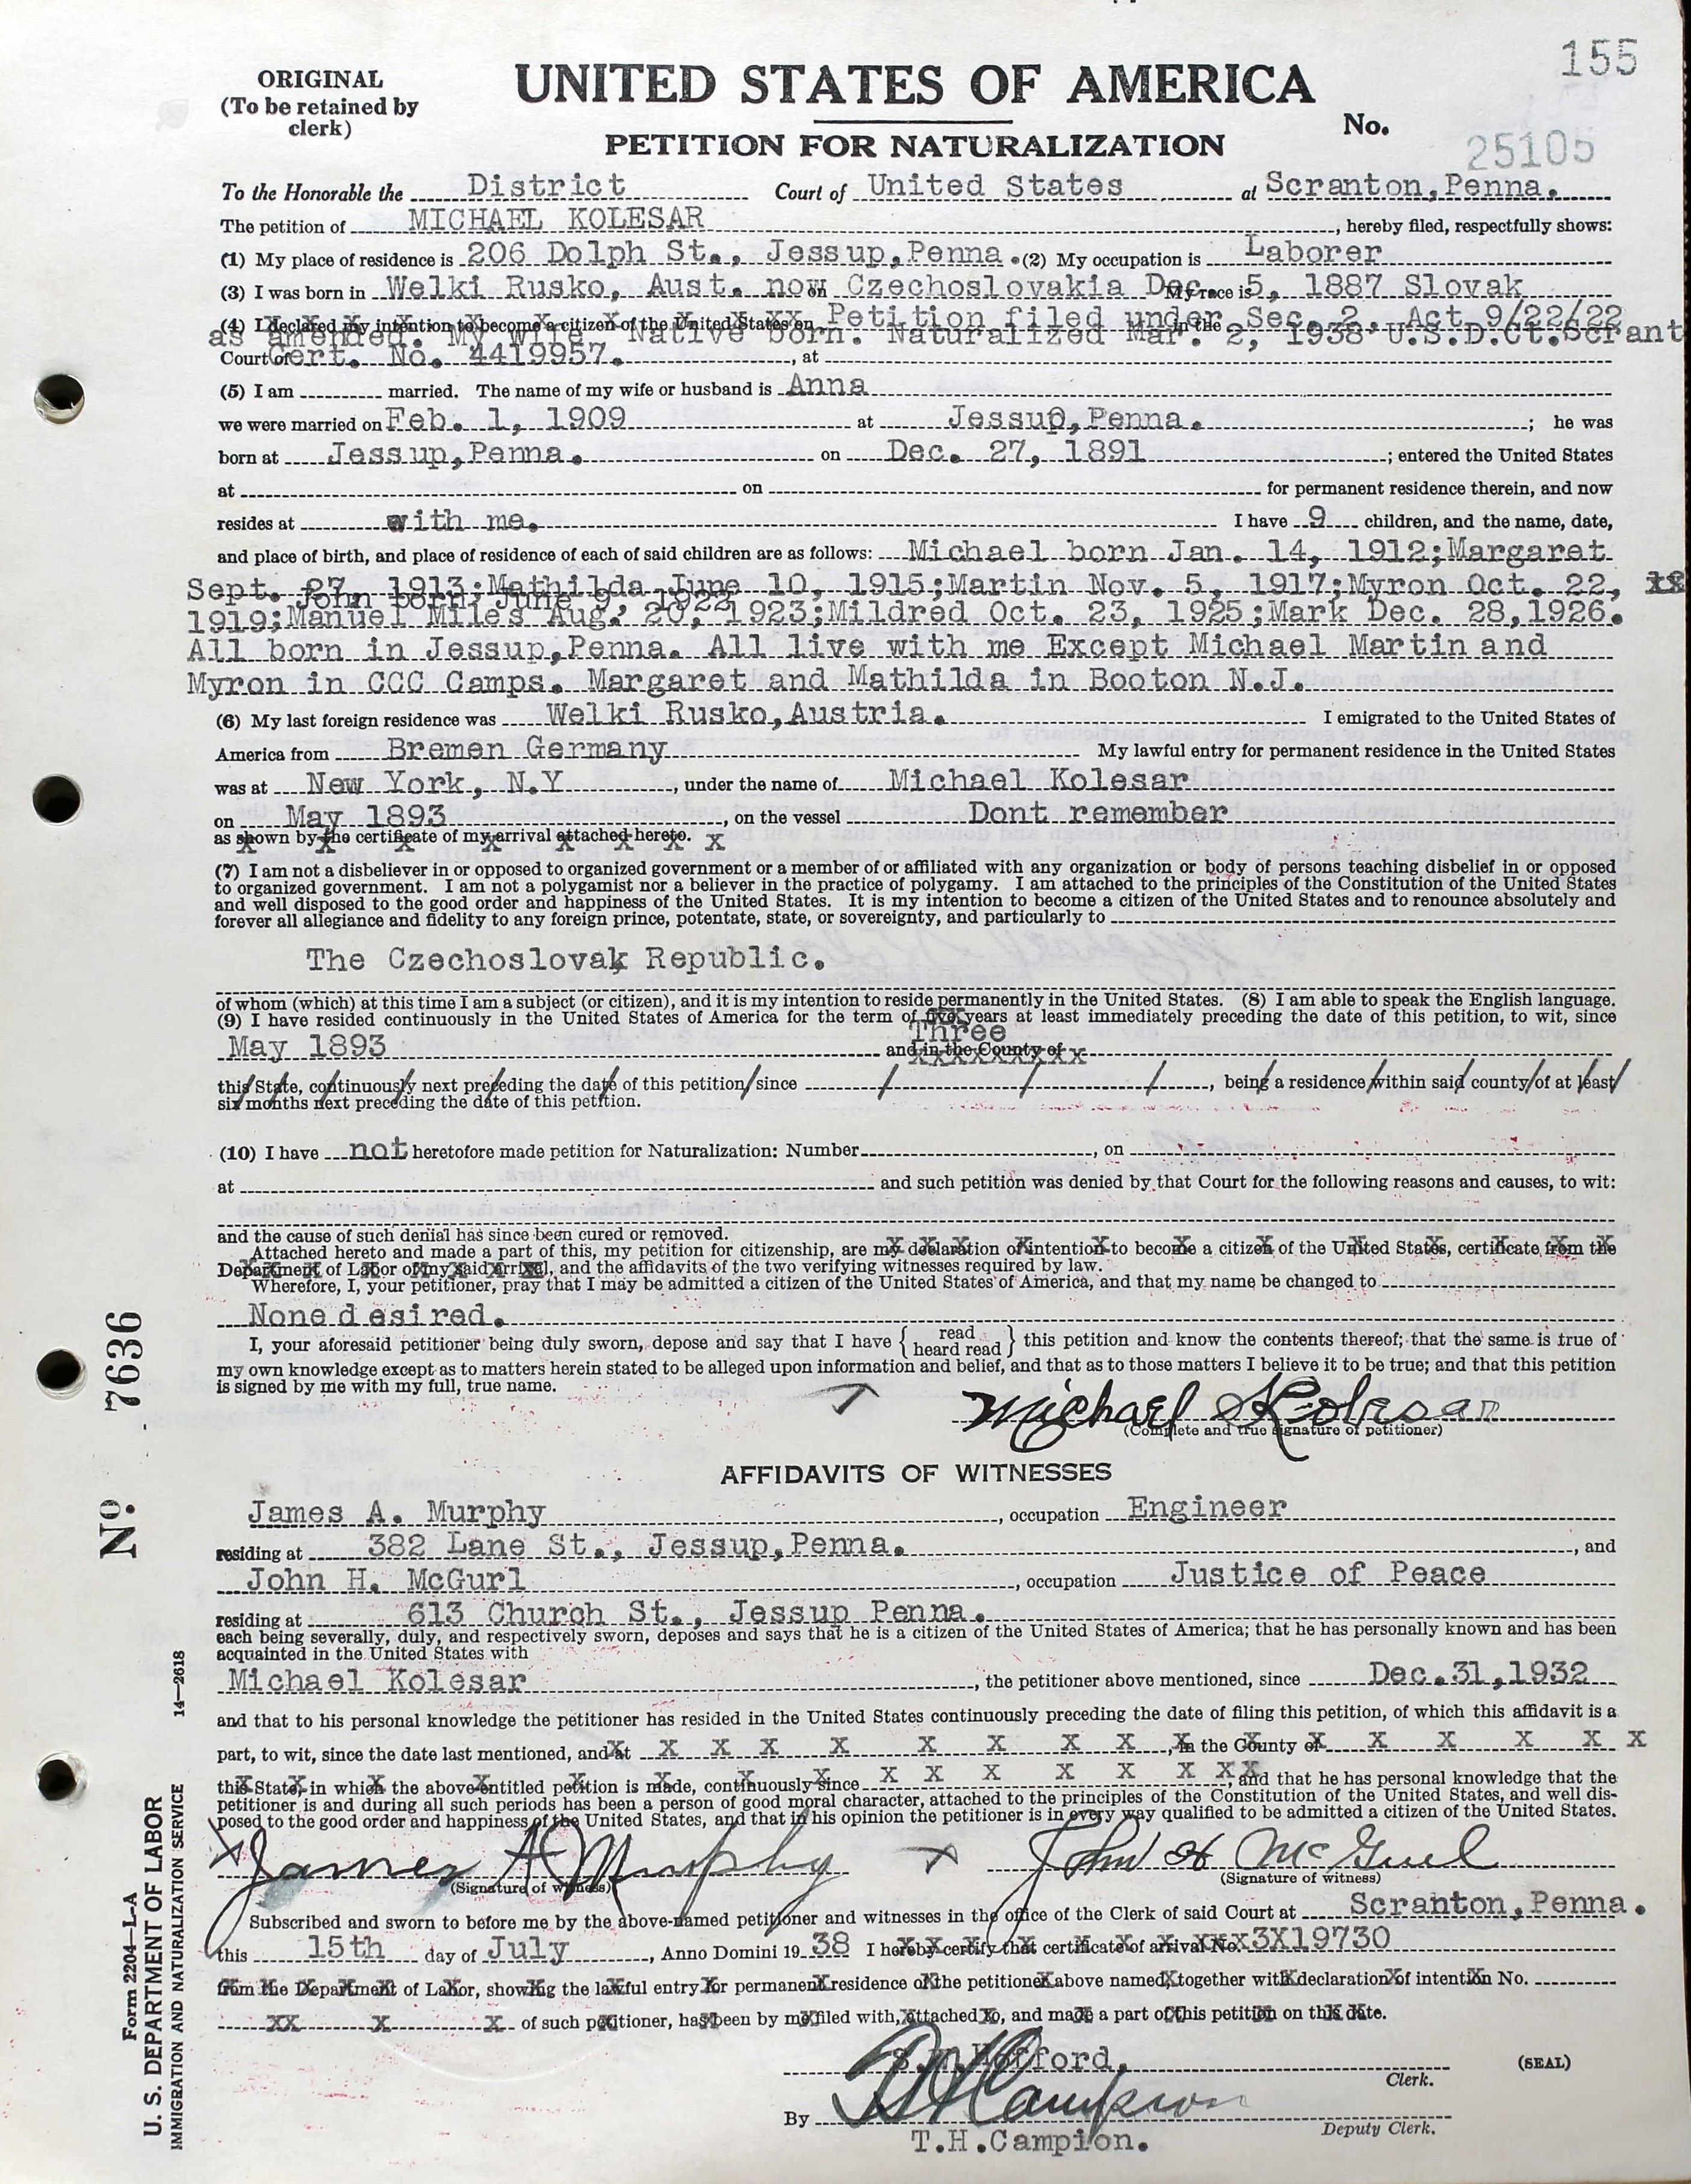 155
ORIGINAL
(To be retained by
clerk)
UNITED STATES OF AMERICA
PETITION FOR NATURALIZATION
No. 25105
To the Honorable the District Court of United States at Scranton, Penna.
The petition of MICHAEL KOLESAR, hereby filed, respectfully shows:
(1) My place of residence is 206 Dolph St., Jessup, Penna. (2) My occupation is Laborer
(3) I was born in Welki Rusko, Aust. now on Czechoslovakia Dec. 5, 1887 My race is Slovak
(4) I declared my intention to become a citizen of the United States on Petition filed under in the Sec. 2, Act 9/22/22
as amended. My wife Native born. Naturalized Mar. 2, 1938 U.S.D.Ct.Scrant
Court of Cert. No. 4419957., at
(5) I am married. The name of my wife or husband is Anna
we were married on Feb. 1, 1909 at Jessup, Penna.; he was
born at Jessup, Penna. on Dec. 27, 1891; entered the United States
at on for permanent residence therein, and now
resides at with me. I have 9 children, and the name, date,
and place of birth, and place of residence of each of said children are as follows: Michael born Jan. 14, 1912; Margaret
Sept. 27, 1913; Mathilda June 10, 1915; Martin Nov. 5, 1917; Myron Oct. 22,
John born June 9, 1922
1919; Manuel Miles Aug. 20, 1923; Mildred Oct. 23, 1925; Mark Dec. 28, 1926.
All born in Jessup, Penna. All live with me Except Michael Martin and
Myron in CCC Camps. Margaret and Mathilda in Booton N.J.
(6) My last foreign residence was Welki Rusko, Austria. I emigrated to the United States of
America from Bremen Germany My lawful entry for permanent residence in the United States
was at New York, N.Y, under the name of Michael Kolesar
on May 1893, on the vessel Dont remember
as shown by the certificate of my arrival attached hereto. X
(7) I am not a disbeliever in or opposed to organized government or a member of or affiliated with any organization or body of persons teaching disbelief in or opposed
to organized government. I am not a polygamist nor a believer in the practice of polygamy. I am attached to the principles of the Constitution of the United States
and well disposed to the good order and happiness of the United States. It is my intention to become a citizen of the United States and to renounce absolutely and
forever all allegiance and fidelity to any foreign prince, potentate, state, or sovereignty, and particularly to
The Czechoslovak Republic.
of whom (which) at this time I am a subject (or citizen), and it is my intention to reside permanently in the United States. (8) I am able to speak the English language.
(9) I have resided continuously in the United States of America for the term of five years at least immediately preceding the date of this petition, to wit, since
Three
May 1893 and in the County of
this State, continuously next preceding the date of this petition, since , being a residence within said county of at least
six months next preceding the date of this petition.
(10) I have not heretofore made petition for Naturalization: Number , on
at and such petition was denied by that Court for the following reasons and causes, to wit:
and the cause of such denial has since been cured or removed.
Attached hereto and made a part of this, my petition for citizenship, are my declaration of intention to become a citizen of the United States, certificate from the
Department of Labor of my said arrival, and the affidavits of the two verifying witnesses required by law.
Wherefore, I, your petitioner, pray that I may be admitted a citizen of the United States of America, and that my name be changed to
None desired.
I, your aforesaid petitioner being duly sworn, depose and say that I have { read heard read } this petition and know the contents thereof; that the same is true of
my own knowledge except as to matters herein stated to be alleged upon information and belief, and that as to those matters I believe it to be true; and that this petition
is signed by me with my full, true name.
Michael Kolesar
(Complete and true signature of petitioner)
AFFIDAVITS OF WITNESSES
James A. Murphy, occupation Engineer
residing at 382 Lane St., Jessup, Penna., and
John H. McGurl, occupation Justice of Peace
residing at 613 Church St., Jessup Penna.
each being severally, duly, and respectively sworn, deposes and says that he is a citizen of the United States of America; that he has personally known and has been
acquainted in the United States with
Michael Kolesar, the petitioner above mentioned, since Dec. 31, 1932
and that to his personal knowledge the petitioner has resided in the United States continuously preceding the date of filing this petition, of which this affidavit is a
part, to wit, since the date last mentioned, and at X X X X X X X X, in the County of X X X X X
this State, in which the above-entitled petition is made, continuously since X X X X X X X X, and that he has personal knowledge that the
petitioner is and during all such periods has been a person of good moral character, attached to the principles of the Constitution of the United States, and well dis-
posed to the good order and happiness of the United States, and that in his opinion the petitioner is in every way qualified to be admitted a citizen of the United States.
James A Murphy
John H McGurl
(Signature of witness)
(Signature of witness)
Subscribed and sworn to before me by the above-named petitioner and witnesses in the office of the Clerk of said Court at Scranton, Penna.
this 15th day of July, Anno Domini 19 38 I hereby certify that certificate of arrival No. 3X19730
from the Department of Labor, showing the lawful entry for permanent residence of the petitioner above named, together with declaration of intention No.
XX X X of such petitioner, has been by me filed with, attached to, and made a part of this petition on this date.
S.M.Hofford,
Clerk.
(SEAL)
By T H Campion
Deputy Clerk.
T.H.Campion.
No. 7636
14—2618
Form 2204—L-A
U. S. DEPARTMENT OF LABOR
IMMIGRATION AND NATURALIZATION SERVICE